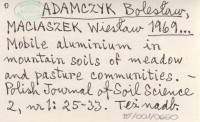 ADAMCZYK Bolesław,
MACIASZEK Wiesław 1969...
Mobile aluminium in
mountain soils of meadow
and pasture communities. -
Polish Journal of Soil Science
2, nr 1: 25-33. Też nadb.